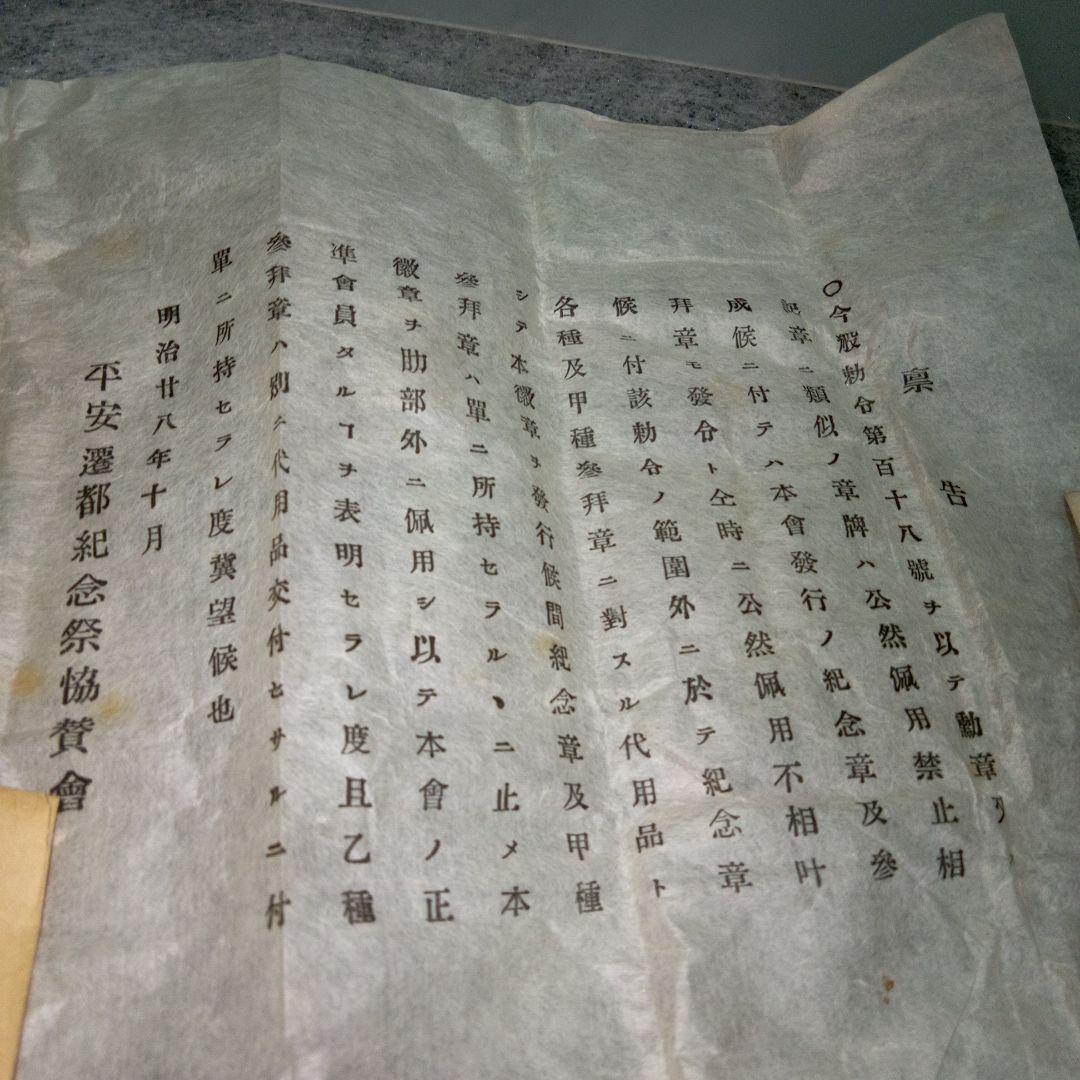 稟告
〇今般勅令第百十八號ヲ以テ勳章
記章ニ類似ノ章牌ハ公然佩用禁止相
成候ニ付テハ本會發行ノ紀念章及參
拜章モ發令ト仝時ニ公然佩用不相叶
候ニ付該勅令ノ範圍外ニ於テ紀念章
各種及甲種參拜章ニ對スル代用品ト
シテ本徽章ヲ發行候間紀念章及甲種
參拜章ハ單ニ所持セラルヽニ止メ本
徽章ヲ肋部外ニ佩用シ以テ本會ノ正
準會員タルヿヲ表明セラレ度且乙種
參拜章ハ別ニ代用品交付セサルニ付
單ニ所持セラレ度冀望候也
明治廿八年十月
平安遷都紀念祭協賛會